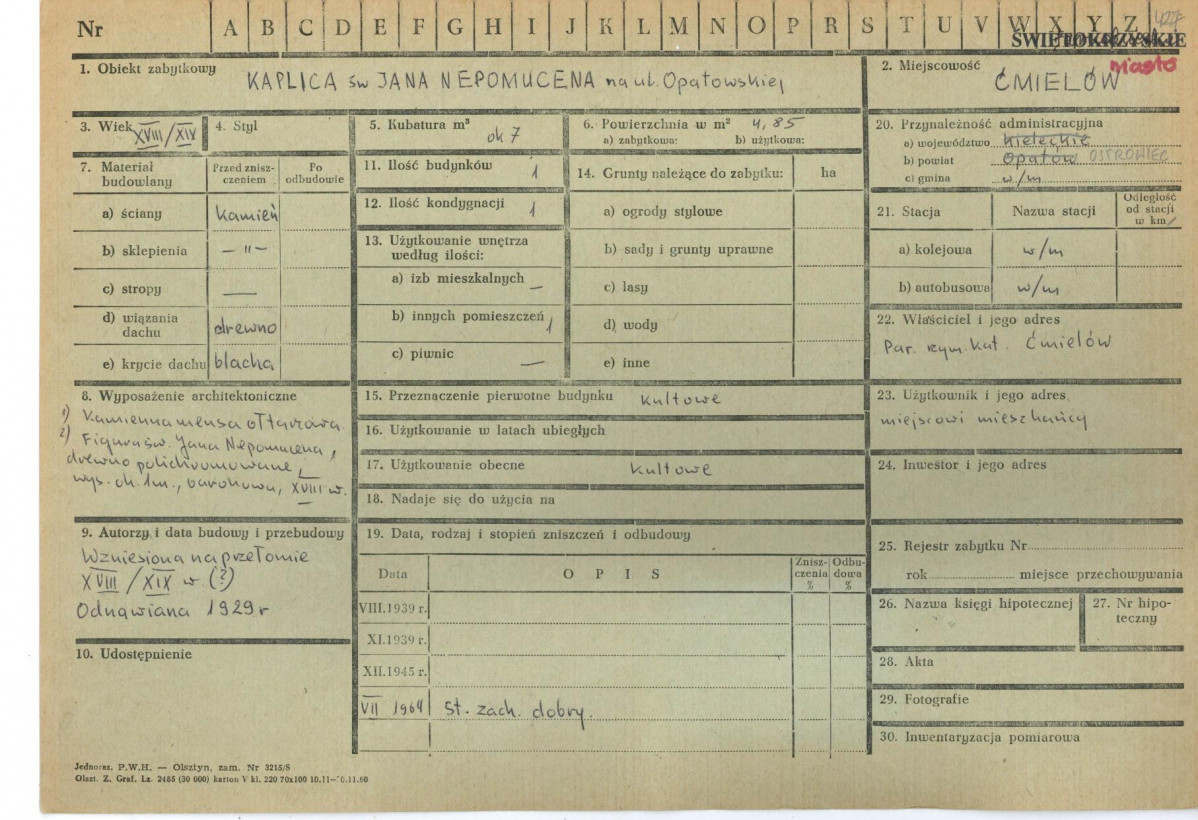 Nr A B C D E F G H I J K L M N O P R S T U V W X Y Z
427
ŚWIĘTOKRZYSKIE
1. Obiekt zabytkowy
KAPLICA św JANA NEPOMUCENA na ul. Opatowskiej
2. Miejscowość
miasto
ĆMIELÓW
3. Wiek XVIII/XIV
4. Styl
5. Kubatura m³
ok 7
6. Powierzchnia w m² 4,85
a) zabytkowa: b) użytkowa:
20. Przynależność administracyjna
a) województwo kieleckie
b) powiat Opatów OSTROWIEC
c) gmina w/m
7. Materiał budowlany
Przed zniszczeniem
Po odbudowie
a) ściany kamień
b) sklepienia — " —
c) stropy —
d) wiązania dachu drewno
e) krycie dachu blacha
11. Ilość budynków 1
12. Ilość kondygnacji 1
13. Użytkowanie wnętrza
według ilości:
a) izb mieszkalnych —
b) innych pomieszczeń 1
c) piwnic —
14. Grunty należące do zabytku: ha
a) ogrody stylowe
b) sady i grunty uprawne
c) lasy
d) wody
e) inne
21. Stacja
Nazwa stacji
Odległość od stacji w km
a) kolejowa w/m
b) autobusowa w/m
22. Właściciel i jego adres
Par. rzym. kat. Ćmielów
8. Wyposażenie architektoniczne
1) Kamienna mensa ołtarzowa.
2) Figura św. Jana Nepomucena,
drewno polichromowane,
wys. ok. 1m., barokowa, XVIII w.
15. Przeznaczenie pierwotne budynku kultowe
16. Użytkowanie w latach ubiegłych
17. Użytkowanie obecne kultowe
18. Nadaje się do użycia na
23. Użytkownik i jego adres
miejscowi mieszkańcy
24. Inwestor i jego adres
9. Autorzy i data budowy i przebudowy
Wzniesiona na przełomie
XVIII/XIX w (?)
Odnawiana 1929 r
10. Udostępnienie
19. Data, rodzaj i stopień zniszczeń i odbudowy
Data
O P I S
Zniszczenia %
Odbudowa %
VIII.1939 r.
XI.1939 r.
XII.1945 r.
VII 1964 St. zach. dobry.
25. Rejestr zabytku Nr
rok miejsce przechowywania
26. Nazwa księgi hipotecznej
27. Nr hipoteczny
28. Akta
29. Fotografie
30. Inwentaryzacja pomiarowa
Jednoraz. P.W.H. — Olsztyn, zam. Nr 3215/S
Olszt. Z. Graf. Lz. 2485 (30 000) karton V kl. 220 70x100 10.11—10.11.60